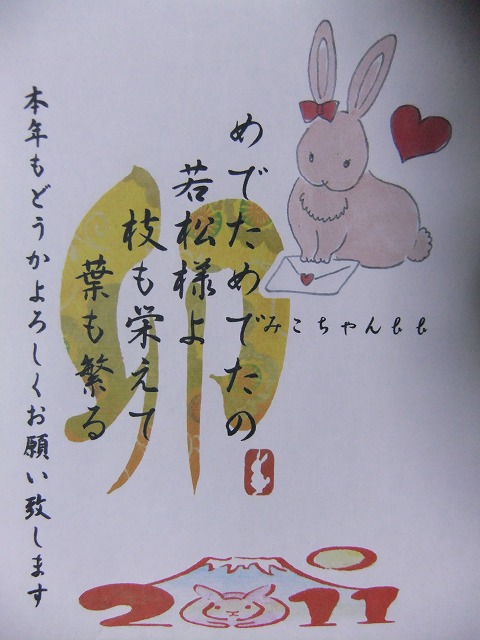 めでためでたの
若松様よ
枝も栄えて
葉も繁る
卯
みこちゃんもも
本年もどうかよろしくお願い致します
2011